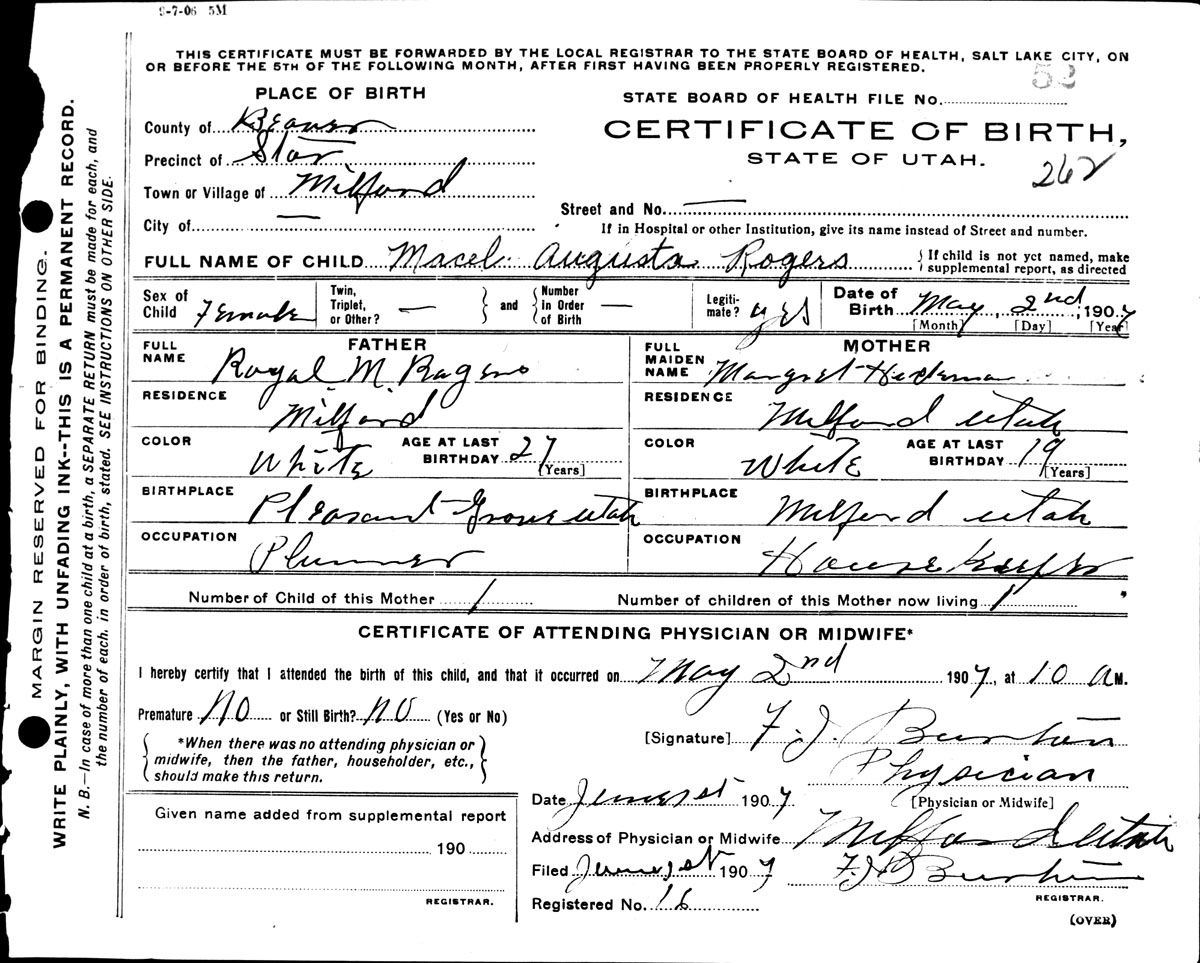 9-7-06 5M
THIS CERTIFICATE MUST BE FORWARDED BY THE LOCAL REGISTRAR TO THE STATE BOARD OF HEALTH, SALT LAKE CITY, ON
OR BEFORE THE 5TH OF THE FOLLOWING MONTH, AFTER FIRST HAVING BEEN PROPERLY REGISTERED.
52
PLACE OF BIRTH
STATE BOARD OF HEALTH FILE No.
County of Beaver
CERTIFICATE OF BIRTH,
Precinct of Star
STATE OF UTAH.
262
Town or Village of Milford
Street and No. —
City of —
If in Hospital or other Institution, give its name instead of Street and number.
FULL NAME OF CHILD Macel Augusta Rogers { If child is not yet named, make supplemental report, as directed
Sex of Child Female Twin, Triplet, or Other? — and Number in Order of Birth — Legitimate? yes Date of Birth May 2nd, 1907
[Month] [Day] [Year]
FATHER
FULL NAME Royal M. Rogers
RESIDENCE Milford
COLOR White AGE AT LAST BIRTHDAY 27 [Years]
BIRTHPLACE Pleasant Grove utah
OCCUPATION
MOTHER
FULL MAIDEN NAME Margret
RESIDENCE Milford utah
COLOR White AGE AT LAST BIRTHDAY 19 [Years]
BIRTHPLACE Milford utah
OCCUPATION House Keeper
Number of Child of this Mother 1 Number of children of this Mother now living 1
CERTIFICATE OF ATTENDING PHYSICIAN OR MIDWIFE*
I hereby certify that I attended the birth of this child, and that it occurred on May 2nd 1907, at 10 a M.
Premature No or Still Birth? No (Yes or No)
{ *When there was no attending physician or midwife, then the father, householder, etc., should make this return. }
[Signature] F. J.
Physician
[Physician or Midwife]
Date June 1st 1907.
Address of Physician or Midwife Milford utah
Filed June 1st 1907 F. J.
REGISTRAR.
Registered No. 16
(OVER)
Given name added from supplemental report
190
REGISTRAR.
MARGIN RESERVED FOR BINDING.
WRITE PLAINLY, WITH UNFADING INK--THIS IS A PERMANENT RECORD.
N. B.—In case of more than one child at a birth, a SEPARATE RETURN must be made for each, and
the number of each, in order of birth, stated. SEE INSTRUCTIONS ON OTHER SIDE.